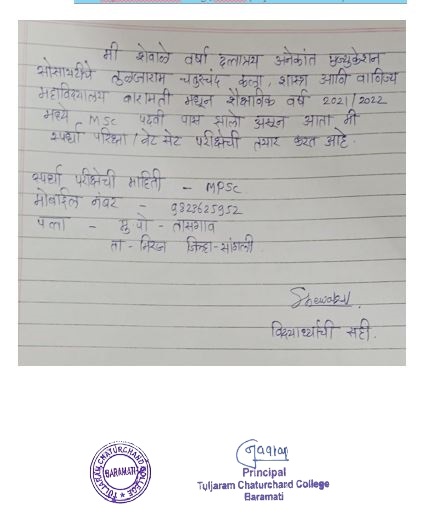 मी शेवाळे वर्षा दत्तात्रय अनेकांत एज्युकेशन
सोसायटीचे तुळजाराम चतुरचंद कला, शास्त्र आणि वाणिज्य
महाविद्यालय बारामती मधून शैक्षणिक वर्ष 2021/2022
मध्ये MSC पदवी पास झाले असून आता मी
स्पर्धा परिक्षा / नेट सेट परीक्षेची तयार करत आहे.
स्पर्धा परीक्षेची माहिती - MPSC
मोबाईल नंबर - 9323625952
पत्ता - मु पो - तासगाव
ता - मिरज जिल्हा - सांगली
Shewale
विद्यार्थ्याची सही.
TULJARAM CHATURCHAND COLLEGE
BARAMATI
Principal
Tuljaram Chaturchard College
Baramati